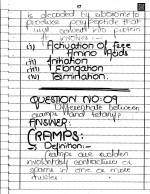 is decoded by ribosome to
produce polypeptide that
will convert into protein
It involves:-
(i) Activation of free
Amino Acids
(ii) Initiation
(iii) Elongation
(iv) Termination.
QUESTION NO:09
Differentiate between
cramps and tetany?
ANSWER:
CRAMPS:
Definition:-
Cramps are sudden
involuntary contractions or
spasms in one or more
muscles.